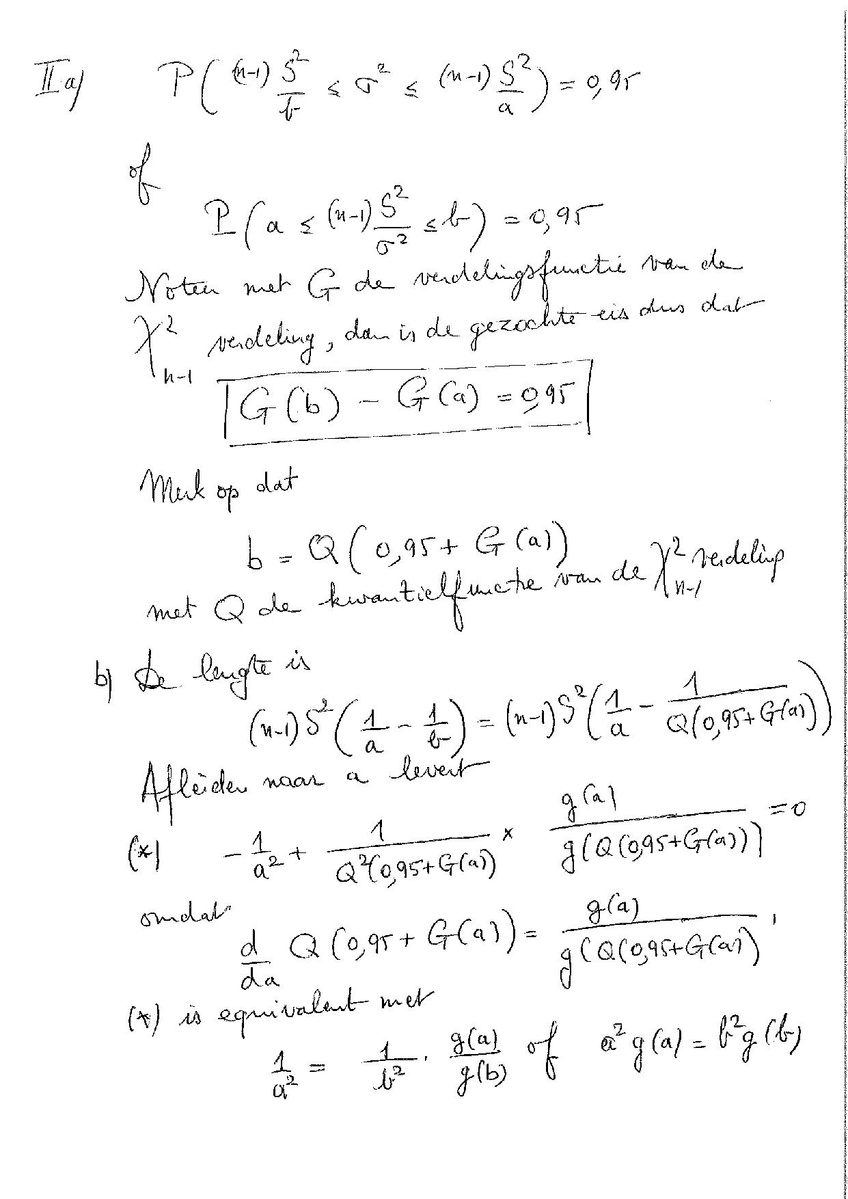 II a) P( (n-1) S²/b ≤ σ² ≤ (n-1) S²/a ) = 0,95
of
P( a ≤ (n-1) S²/σ² ≤ b ) = 0,95
Noteer met G de verdelingsfunctie van de
χ²ₙ₋₁ verdeling, dan is de gezochte eis dus dat
G(b) - G(a) = 0,95
Merk op dat
b = Q( 0,95 + G(a))
met Q de kwantielfunctie van de χ²ₙ₋₁ verdeling
b) De lengte is
(n-1) S² ( 1/a - 1/b ) = (n-1) S² ( 1/a - 1/Q(0,95+G(a)) )
Afleiden naar a levert
(*) - 1/a² + 1/Q²(0,95+G(a)) × g(a)/g(Q(0,95+G(a))) = 0
omdat
d/da Q(0,95 + G(a)) = g(a)/g(Q(0,95+G(a)) ,
(*) is equivalent met
1/a² = 1/b² . g(a)/g(b) of a² g(a) = b² g(b)